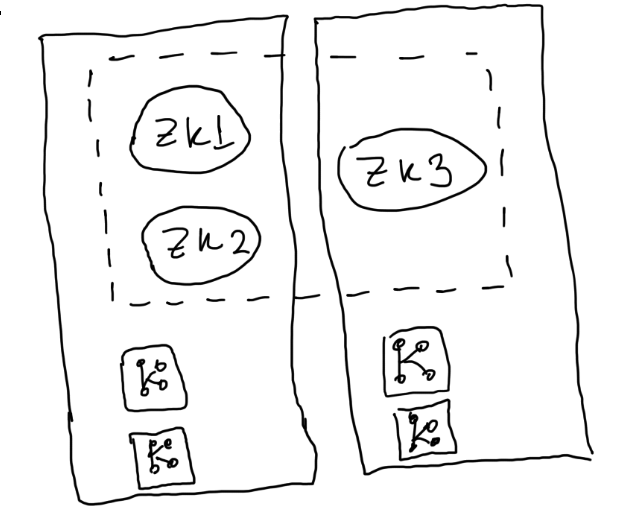 ZK1
ZK2
ZK3